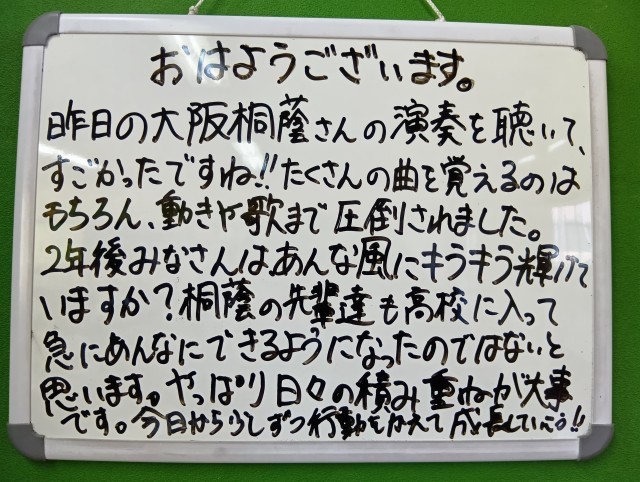 おはようございます。
昨日の大阪桐蔭さんの演奏を聴いて、
すごかったですね!!たくさんの曲を覚えるのは
もちろん、動きや歌まで圧倒されました。
2年後みなさんは、あんな風にキラキラ輝けて
いますか?桐蔭の先輩達も高校に入って
急にあんなにできるようになったのではないと
思います。やっぱり日々の積み重ねが大事
です。今日から少しずつ行動をかえて成長していこう!!